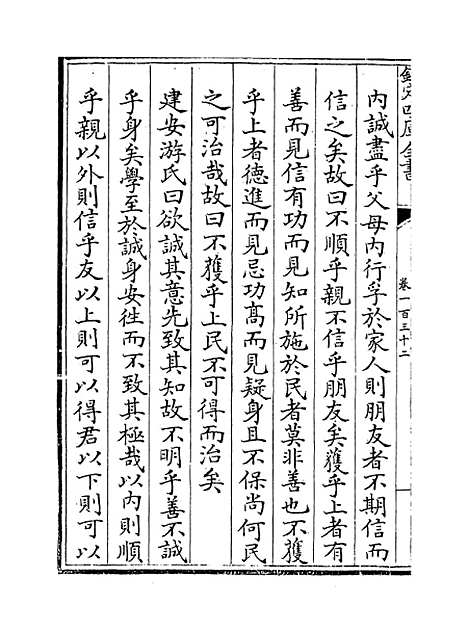 欽定四庫全書
卷一百三十二
内誠盡乎父母内行孚於家人則朋友者不期信而
信之矣故曰不順乎親不信乎朋友矣獲乎上者有
善而見信有功而見知所施於民者莫非善也不獲
乎上者德進而見忌功髙而見疑身且不保尚何民
之可治哉故曰不獲乎上民不可得而治矣
建安游氏曰欲誠其意先致其知故不明乎善不誠
乎身矣學至於誠身安徃而不致其極哉以内則順
乎親以外則信乎友以上則可以得君以下則可以